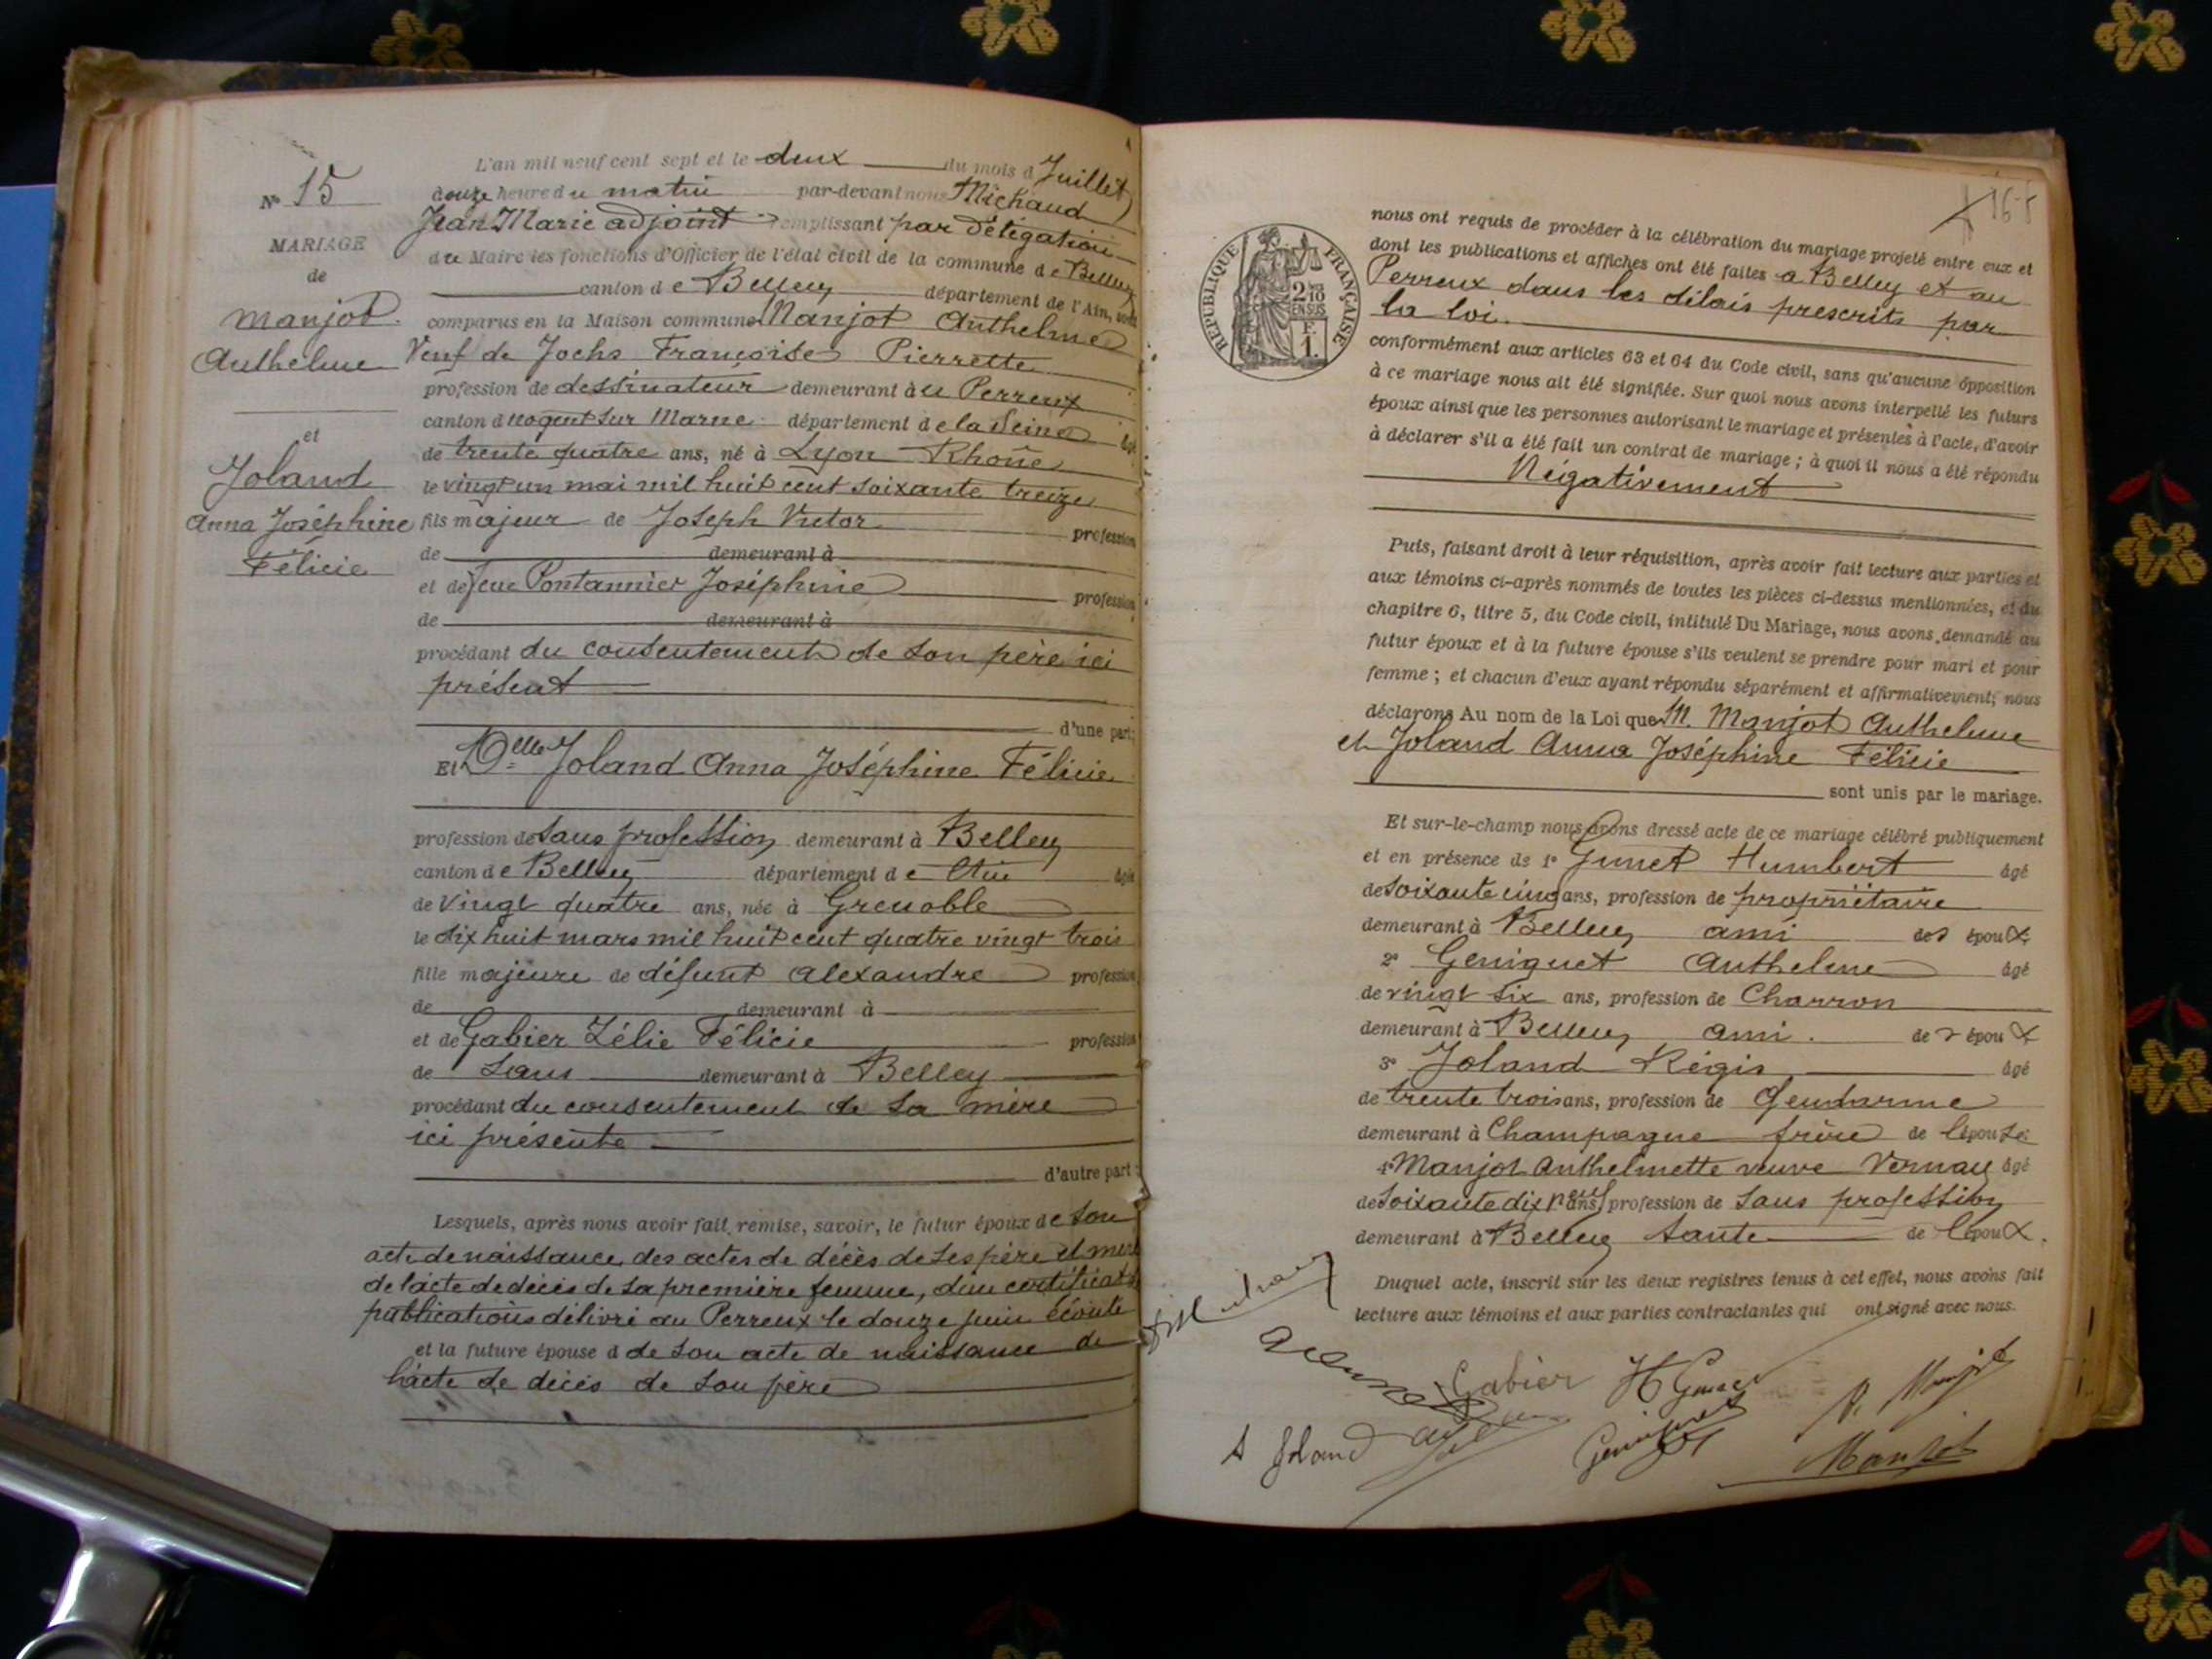 L'an mil neuf cent sept et le deux du mois d Juillet
Nº 15
douze heure du matin par-devant nous Michaud
Jean Marie adjoint remplissant par Délégation
MARIAGE
du Maire les fonctions d'Officier de l'état civil de la commune de Belley
de
canton de Belley département de l'Ain, sont
Manjot
comparus en la Maison commune Manjot Anthelme
Anthelme
Veuf de Jochs Françoise Pierrette
profession de dessinateur demeurant au Perreux
canton d nogent sur Marne département de la Seine âgé
et
de trente quatre ans, né à Lyon Rhône
Joland
le vingt un mai mil huit cent soixante treize
Anna Joséphine
fils majeur de Joseph Victor profession
Félicie
de demeurant à
et de feue Pontannier Joséphine profession
de demeurant à
procédant du consentement de son père ici
présent
d'une part;
Et Delle Joland Anna Joséphine Félicie
profession de sans profession demeurant à Belley
canton de Belley département de Ain âgée
de vingt quatre ans, née à Grenoble
le dix huit mars mil huit cent quatre vingt trois
fille majeure de défunt Alexandre profession
de demeurant à
et de Gabier Zélie Félicie profession
de sans demeurant à Belley
procédant du consentement de sa mère
ici présente
d'autre part;
Lesquels, après nous avoir fait remise, savoir, le futur époux de son
acte de naissance, des actes de décès de ses père et mère
de l'acte de décès de sa première femme, d'un certificat
publications délivré au Perreux le douze juin écoulé
et la future épouse d de son acte de naissance de
l'acte de décès de son père
165
RÉPUBLIQUE FRANÇAISE
2/10 EN SUS
F. 1.
nous ont requis de procéder à la célébration du mariage projeté entre eux et
dont les publications et affiches ont été faites à Belley et au
Perreux dans les délais prescrits par
la loi.
conformément aux articles 63 et 64 du Code civil, sans qu'aucune opposition
à ce mariage nous ait été signifiée. Sur quoi nous avons interpellé les futurs
époux ainsi que les personnes autorisant le mariage et présentes à l'acte, d'avoir
à déclarer s'il a été fait un contrat de mariage; à quoi il nous a été répondu
Négativement
Puis, faisant droit à leur réquisition, après avoir fait lecture aux parties et
aux témoins ci-après nommés de toutes les pièces ci-dessus mentionnées, et du
chapitre 6, titre 5, du Code civil, intitulé Du Mariage, nous avons demandé au
futur époux et à la future épouse s'ils veulent se prendre pour mari et pour
femme; et chacun d'eux ayant répondu séparément et affirmativement, nous
déclarons Au nom de la Loi que M. Manjot Anthelme
et Joland Anna Joséphine Félicie
sont unis par le mariage.
Et sur-le-champ nous avons dressé acte de ce mariage célébré publiquement
et en présence de 1º Junet Humbert âgé
de soixante cinq ans, profession de propriétaire
demeurant à Belley ami des époux
2º Geniquet Anthelme âgé
de vingt six ans, profession de Charron
demeurant à Belley ami. des époux
3º Joland Régis âgé
de trente trois ans, profession de Gendarme
demeurant à Champagne frère de l'épouse
4º Manjot Anthelmette veuve Vernay âgé
de soixante dix neuf ans, profession de sans profession
demeurant à Belley tante de l'époux.
Duquel acte, inscrit sur les deux registres tenus à cet effet, nous avons fait
lecture aux témoins et aux parties contractantes qui ont signé avec nous.
Gabier
Manjot
A Joland
Geniquet
Manjot